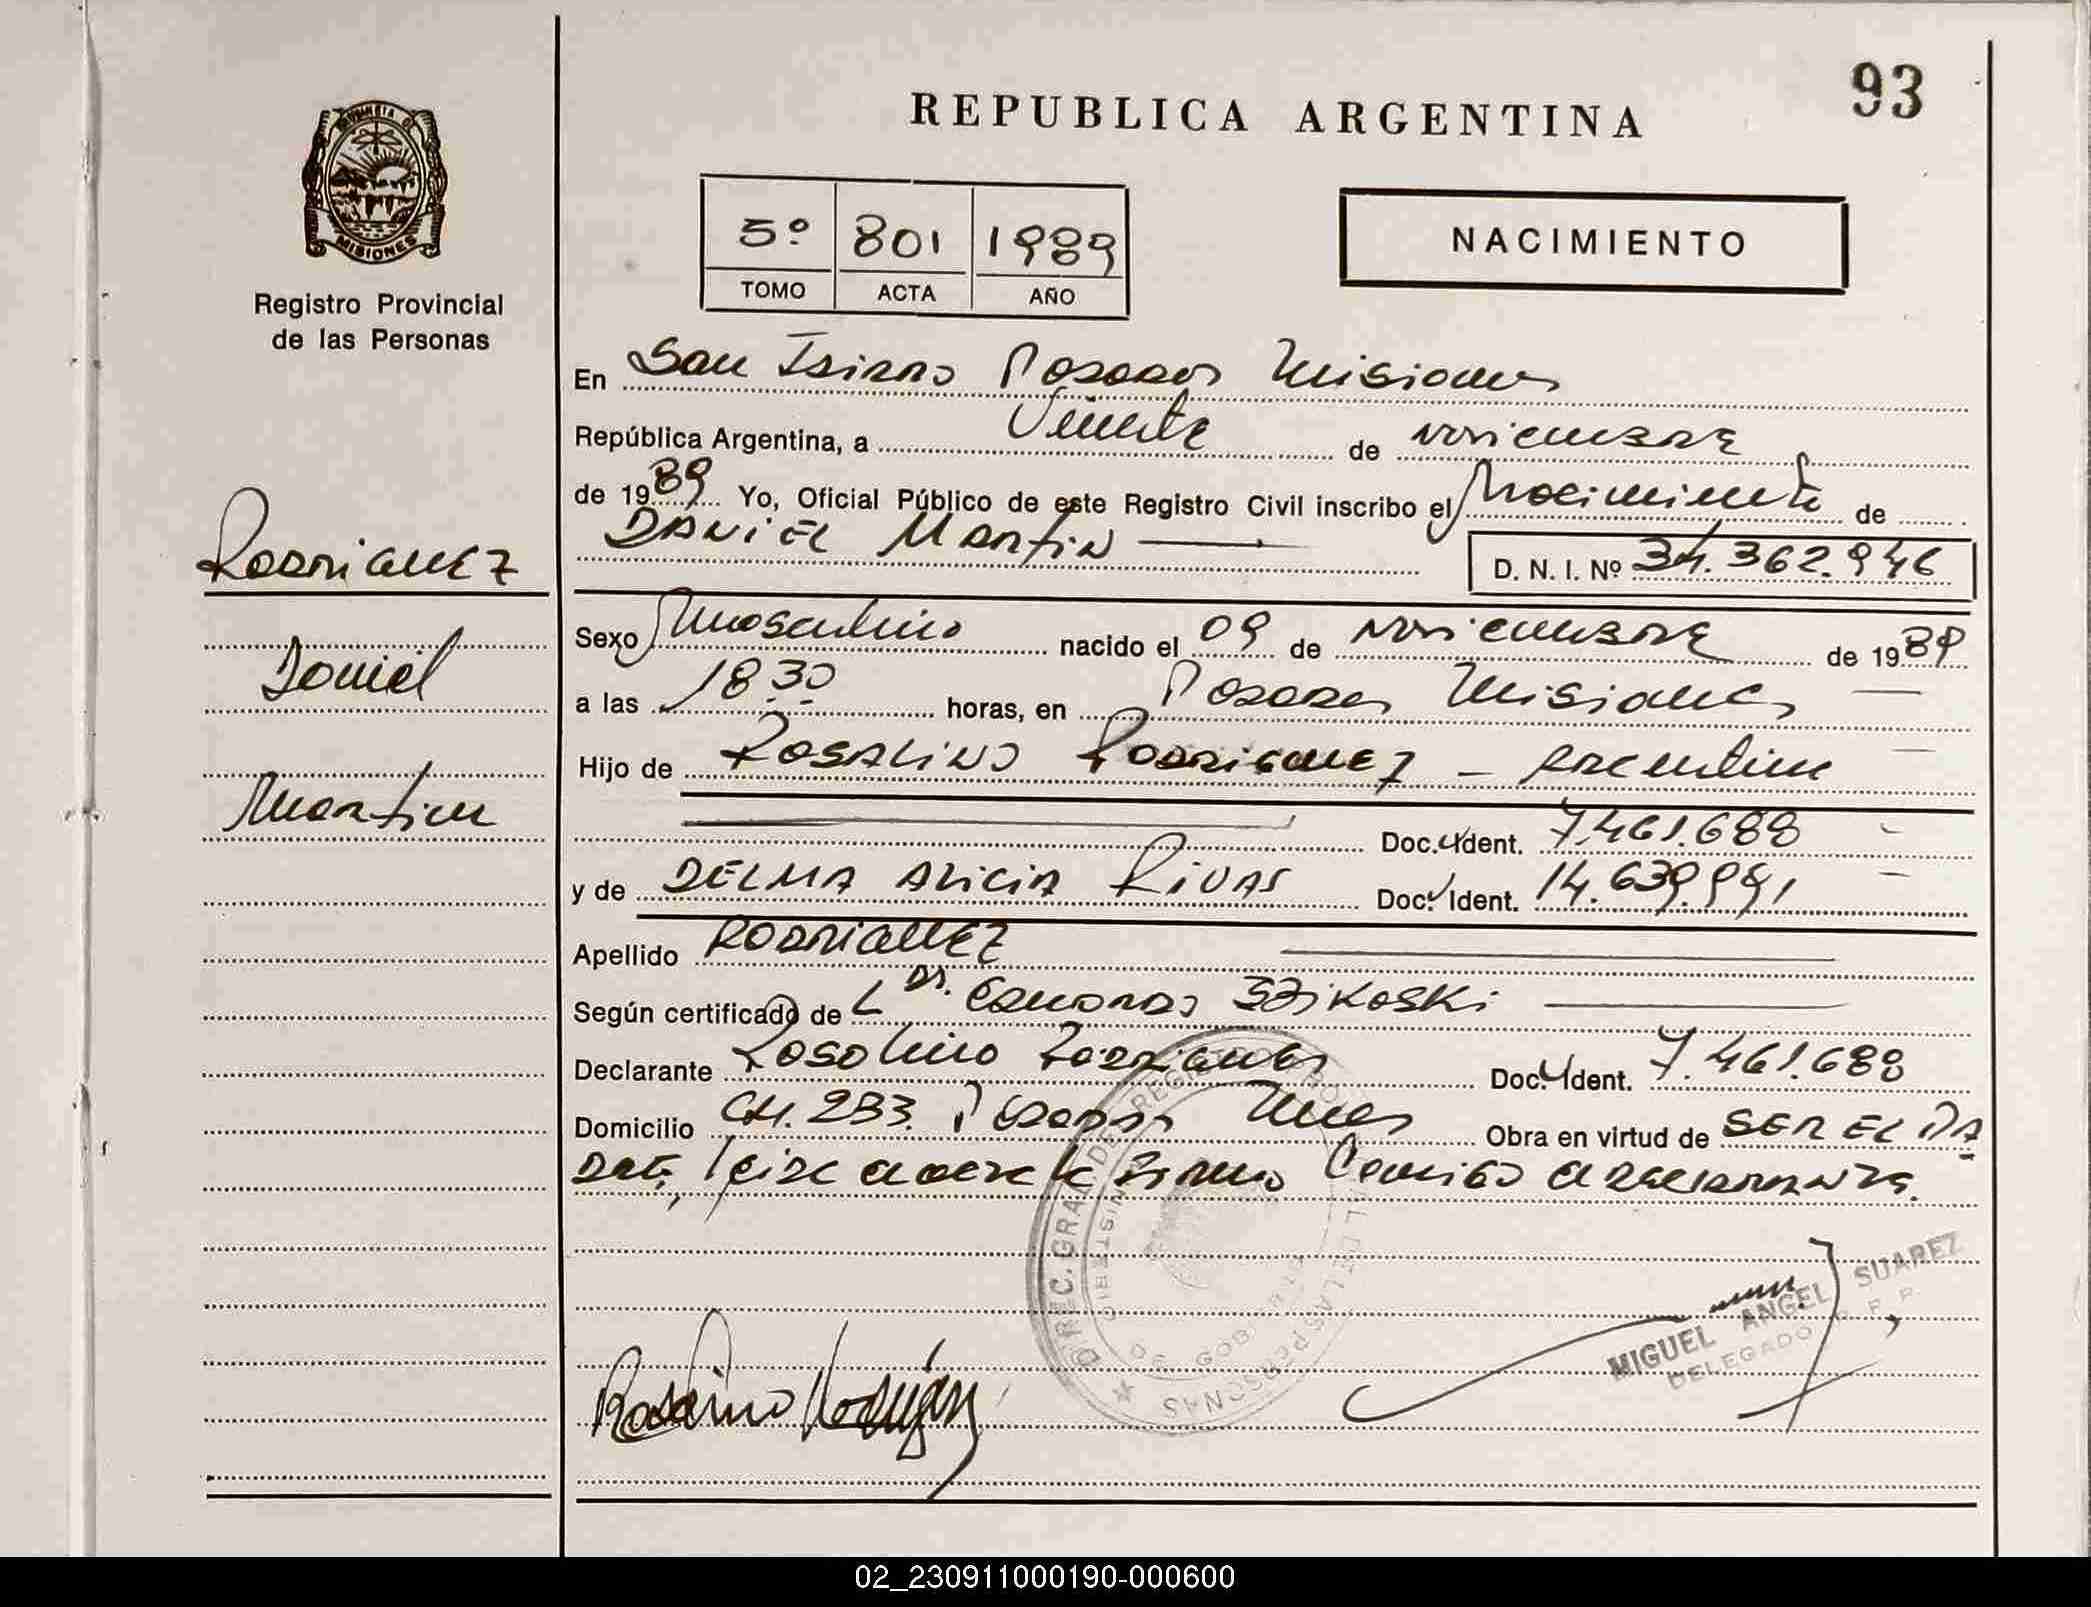 93
REPUBLICA ARGENTINA
5º 801 1989
TOMO ACTA AÑO
NACIMIENTO
PROVINCIA DE
MISIONES
Registro Provincial
de las Personas
En San Isidro Posadas Misiones
República Argentina, a Veinte de noviembre
de 1989 Yo, Oficial Público de este Registro Civil inscribo el Nacimiento de
DANIEL Martin
D. N. I. Nº 34.362.946
Rodriguez
Daniel
Martin
Sexo Masculino nacido el 09 de noviembre de 1989
a las 18 30 horas, en Posadas Misiones
Hijo de ROSALINO Rodriguez - Argentino
Doc. Ident. 7.461.688
y de DELMA ALICIA RIVAS Doc. Ident. 14.639.991
Apellido RODRIGUEZ
Según certificado de Dr. Eduardo
Declarante Rosalino Rodriguez Doc. Ident. 7.461.688
Domicilio CH. 233. Posadas Mnes Obra en virtud de SER EL PA
DRE, leida el acta la firma Conmigo el declarante.
DIREC. GRAL. DE REGISTRO DE LAS PERSONAS
MINISTERIO DE GOB
Rosalino Rodriguez
MIGUEL ANGEL SUAREZ
DELEGADO R. P. P.
02_230911000190-000600